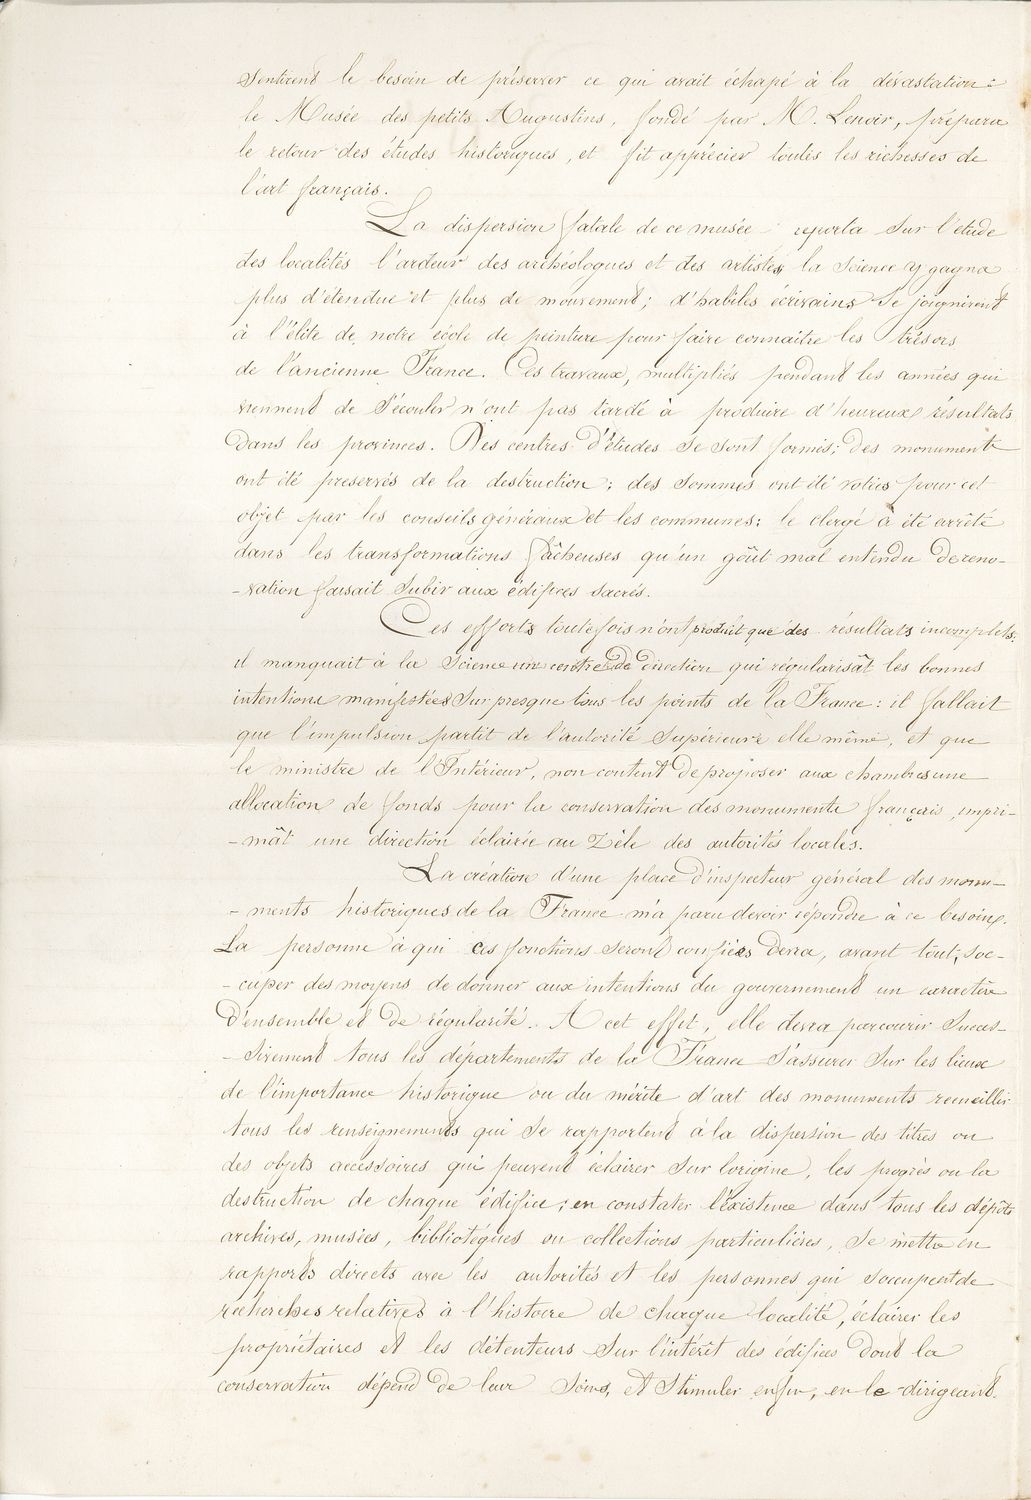 sentirent le besoin de préserver ce qui avait échapé à la dévastation :
le Musée des petits Augustins, fondé par M. Lenoir, prépara
le retour des études historiques, et fit apprécier toutes les richesses de
l'art français.
La dispersion fatale de ce musée reporta sur l'étude
des localités l'ardeur des archéologues et des artistes la science y gagna
plus d'étendue et plus de mouvement ; d'habiles écrivains se joignirent
à l'élite de notre école de peinture pour faire connaître les trésors
de l'ancienne France. Ces travaux, multipliés pendant les années qui
viennent de s'écouler n'ont pas tardé à produire d'heureux résultats
dans les provinces. Des centres d'études se sont formés ; des monuments
ont été preservés de la destruction ; des sommes ont été votées pour cet
objet par les conseils généraux et les communes : le clergé à été arrêté
dans les transformations fâcheuses qu'un goût mal entendu de réno-
-vation faisait subir aux édifices sacrés.
Ces efforts toutefois n'ont produit que des résultats incomplets.
il manquait à la science un centre de direction qui régularisât les bonnes
intentions manifestées sur presque tous les points de la France : il fallait
que l'impulsion partit de l'autorité supérieure elle même, et que
le ministre de l'Intérieur, non content de proposer aux chambres une
allocation de fonds pour la conservation des monuments français, impri-
-mât une direction éclairée au Zèle des autorités locales.
La création d'une place d'inspecteur général des monu-
-ments historiques de la France m'a paru devoir répondre à ce besoin.
La personne à qui ces fonctions seront confiées devra, avant tout, s'oc-
-cuper des moyens de donner aux intentions du gouvernement un caractère
d'ensemble et de régularité. A cet effet, elle devra parcourir succes-
-sivement tous les départements de la France s'assurer sur les lieux
de l'importance historique ou du mérite d'art des monuments recueillir
tous les renseignements qui se rapportent à la dispersion des titres ou
des objets accessoires qui peuvent éclairer sur l'origine, les progrès ou la
destruction de chaque édifice ; en constater l'existence dans tous les dépôts
archives, musées, bibliotéques ou collections particulières, se mettre en
rapports directs avec les autorités et les personnes qui s'occupent de
recherches relatives à l'histoire de chaque localité, éclairer les
propriétaires et les détenteurs sur l'intérêt des édifices dont la
conservation dépend de leur soins, et stimuler enfin, en le dirigeant